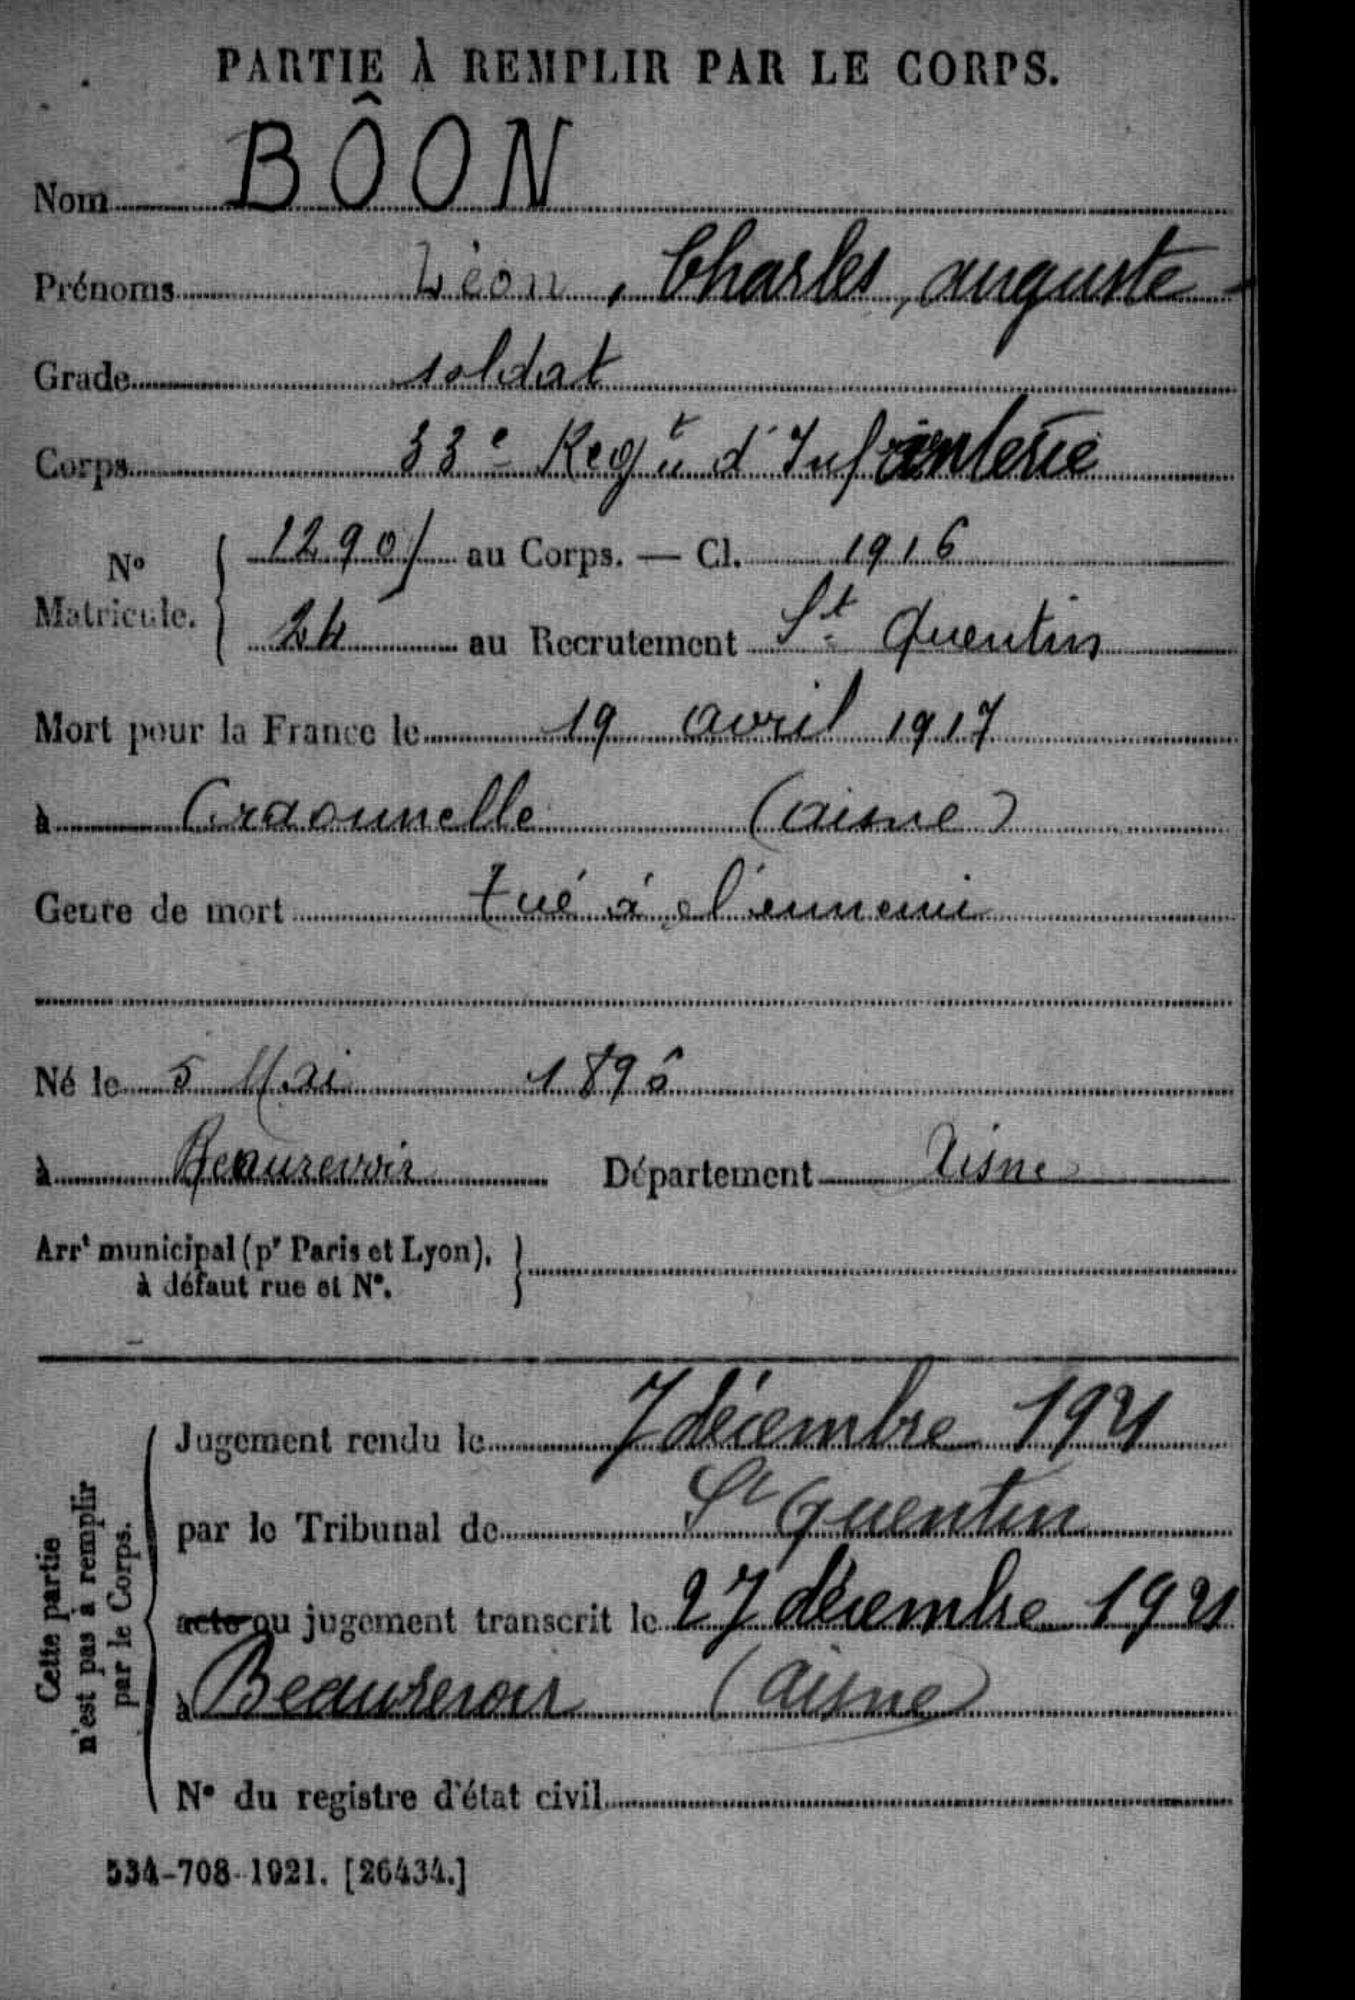 PARTIE À REMPLIR PAR LE CORPS.
Nom BÔON
Prénoms Léon, Charles, auguste
Grade soldat
Corps 33e Regt d'Infanterie
No Matricule. { 1290/ au Corps. — Cl. 1916
24 au Recrutement St Quentin
Mort pour la France le 19 avril 1917
à Craonnelle (aisne)
Genre de mort tué à l'ennemi
Né le 5 Mai 1896
à Beaurevoir Département Aisne
Arrt municipal (pr Paris et Lyon), }
à défaut rue et N°.
Cette partie
n'est pas à remplir
par le Corps.
Jugement rendu le 7 décembre 1921
par le Tribunal de St Quentin
acte ou jugement transcrit le 27 décembre 1921
à Beaurevoir (aisne)
N° du registre d'état civil
534-708-1921. [26434.]